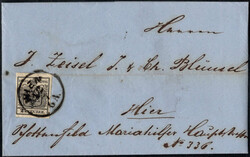 Herren
J. Zeisel J. & Ch. Blümel
Hier
Schottenfeld Mariahilfer Hauptstrasse
No 336.
WIEN